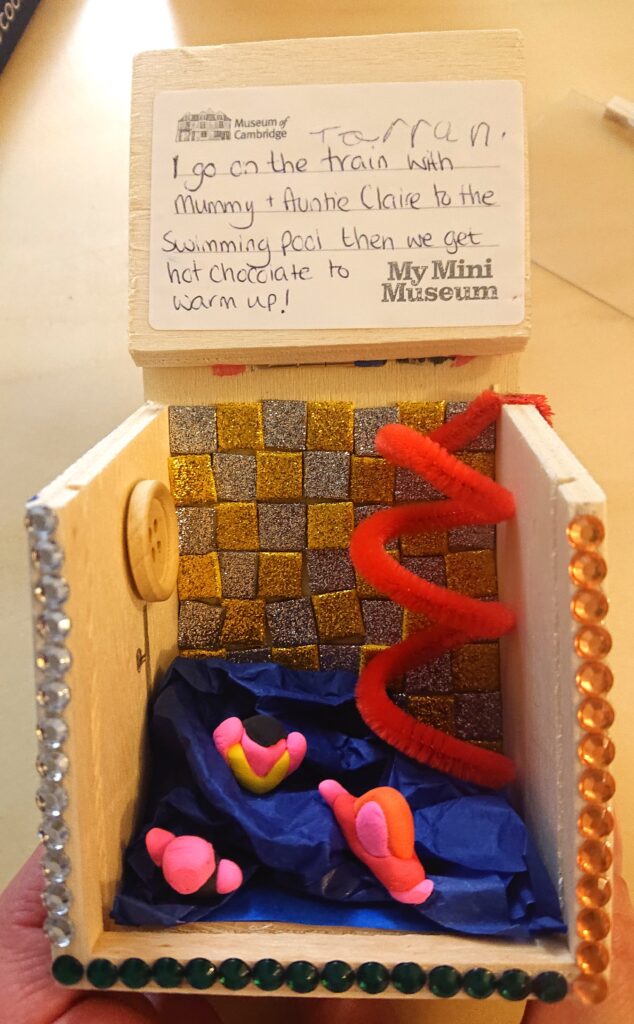 Museum of
Cambridge
Tarran.
I go on the train with
Mummy + Auntie Claire to the
Swimming Pool then we get
hot chocolate to
warm up!
My Mini
Museum